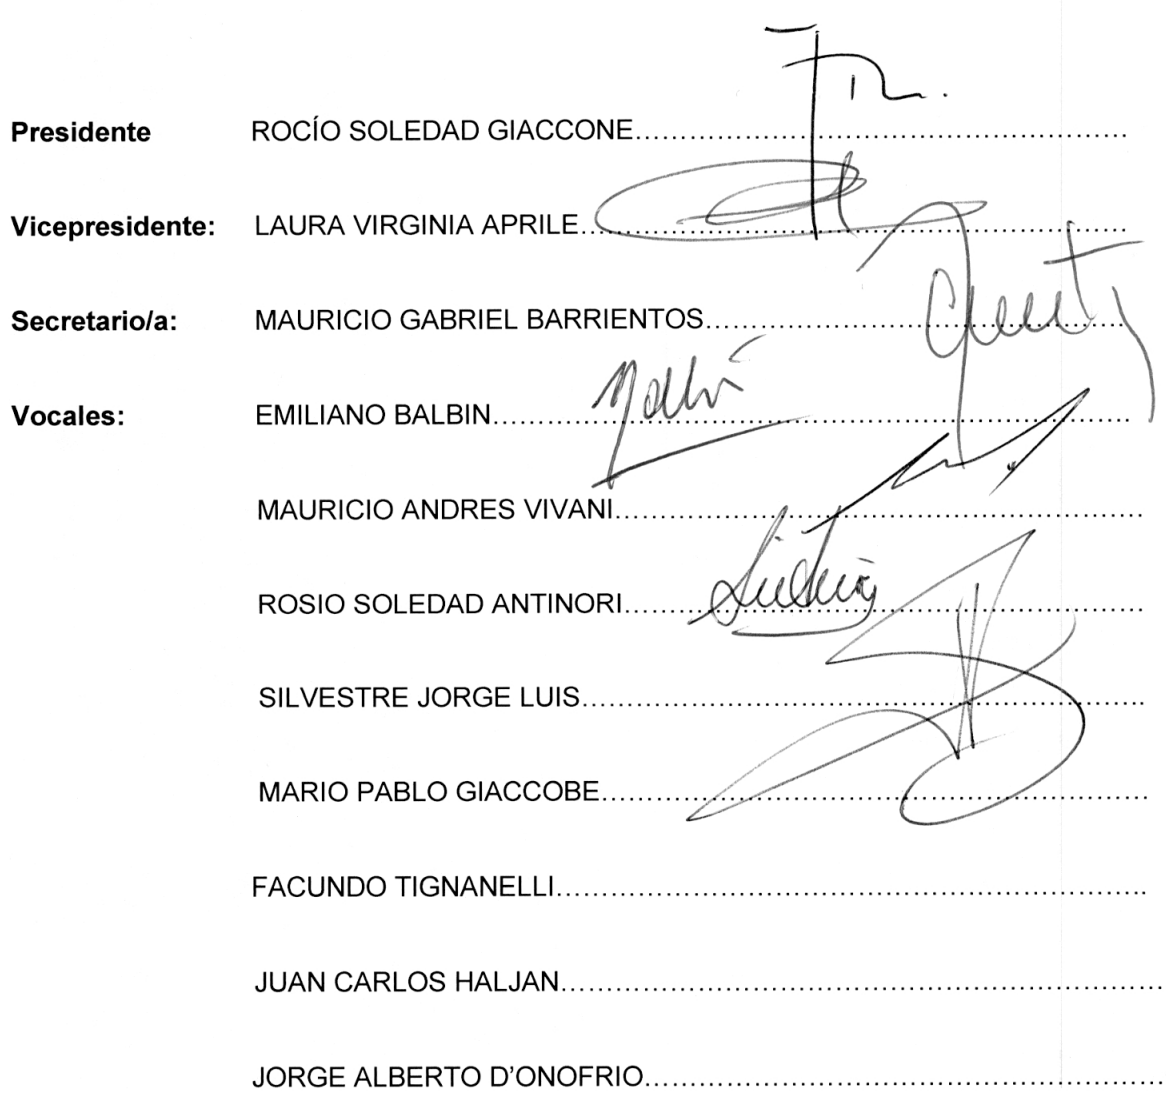 Presidente ROCÍO SOLEDAD GIACCONE
Vicepresidente: LAURA VIRGINIA APRILE
Secretario/a: MAURICIO GABRIEL BARRIENTOS
Vocales: EMILIANO BALBIN
MAURICIO ANDRES VIVANI
ROSIO SOLEDAD ANTINORI
SILVESTRE JORGE LUIS
MARIO PABLO GIACCOBE
FACUNDO TIGNANELLI
JUAN CARLOS HALJAN
JORGE ALBERTO D'ONOFRIO